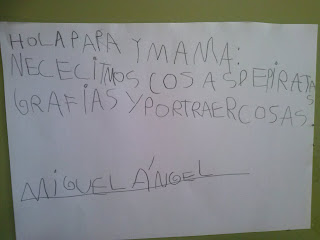 HOLA PAPA Y MAMA:
NECECITMOS COSAS DE PIRATAS
GRAFIAS Y PORTRAER COSAS.
MIGUEL ÁNGEL